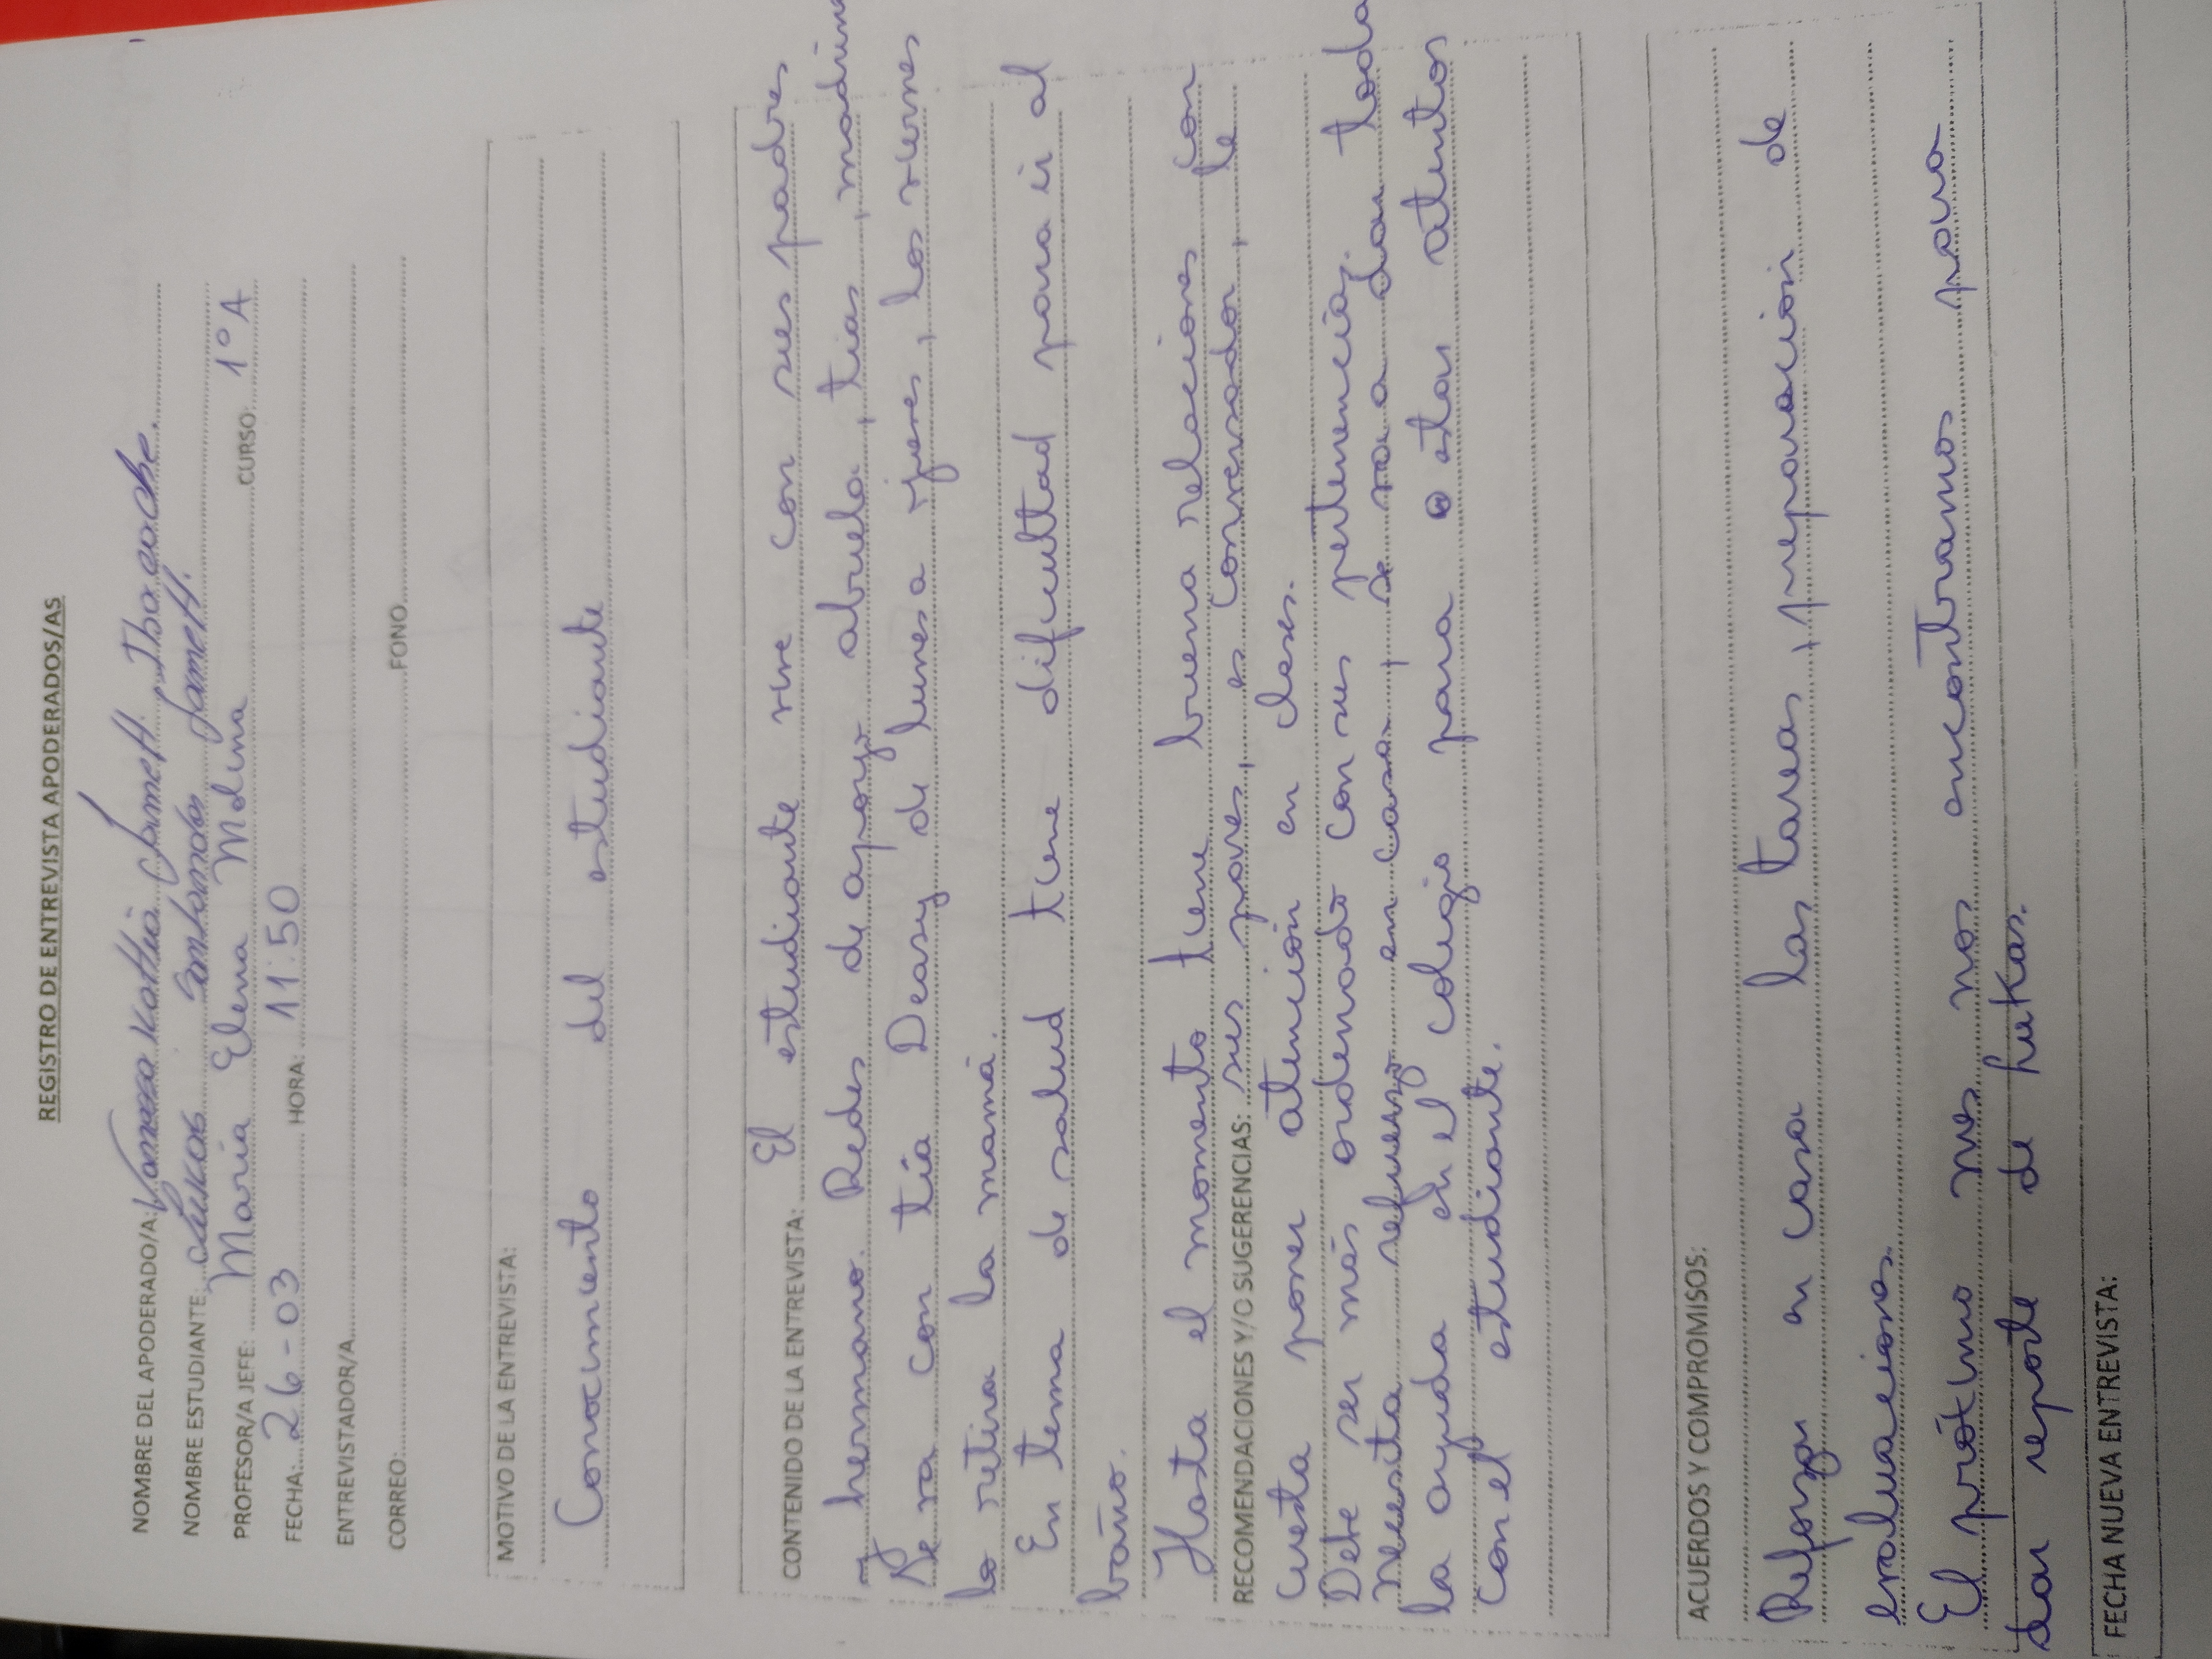 REGISTRO DE ENTREVISTA APODERADOS/AS
NOMBRE DEL APODERADO/A: Vanessa Kattia Jamett
NOMBRE ESTUDIANTE: Lukas Jamett.
PROFESOR/A JEFE: Maria Elena Molina CURSO: 1° A
FECHA: 26-03 HORA: 11:50
ENTREVISTADOR/A
CORREO: FONO
MOTIVO DE LA ENTREVISTA:
Conocimiento del estudiante
CONTENIDO DE LA ENTREVISTA: El estudiante vive con sus padres
y hermano. Redes de apoyo abuela, tias, madrina
Se va con tía Deasy de lunes a jueves, los viernes
lo retira la mamá.
En tema de salud tiene dificultad para ir al
baño.
Hasta el momento tiene buena relaciones con
RECOMENDACIONES Y/O SUGERENCIAS: sus pares, es conversador, le
cuesta poner atención en clases.
Debe ser más ordenado con sus pertenencias.
Necesita refuerzo en casa, se va a dar toda
la ayuda en el colegio para estar atentos
con el estudiante.
ACUERDOS Y COMPROMISOS:
Reforzar en casa las tareas, preparación de
evaluaciones.
El próximo mes nos encontramos para
dar reporte de lukas.
FECHA NUEVA ENTREVISTA: